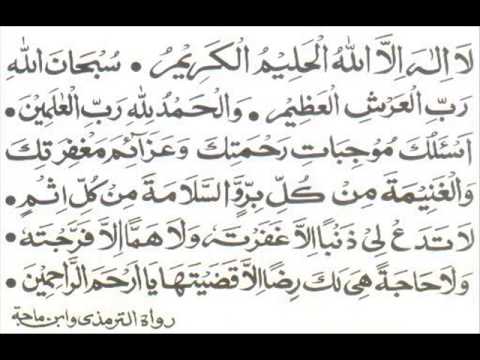 لَا اِلٰهَ اِلَّا اللهُ الْحَلِيْمُ الْكَرِيْمُ ۰ سُبْحَانَ اللهِ
رَبِّ الْعَرْشِ الْعَظِيْمِ ۰ وَالْحَمْدُ لِلهِ رَبِّ الْعٰلَمِيْنَ ۰
اَسْئَلُكَ مُوْجِبَاتِ رَحْمَتِكَ وَعَزَائِمَ مَغْفِرَتِكَ
وَالْغَنِيْمَةَ مِنْ كُلِّ بِرٍّ وَّالسَّلَامَةَ مِنْ كُلِّ اِثْمٍ ۰
لَا تَدَعْ لِيْ ذَنْبًا اِلَّا غَفَرْتَهٗ وَلَا هَمًّا اِلَّا فَرَّجْتَهٗ ۰
وَلَا حَاجَةً هِيَ لَكَ رِضًا اِلَّا قَضَيْتَهَا يَا اَرْحَمَ الرَّاحِمِيْنَ ۰
رواة الترمذى وابن ماجة